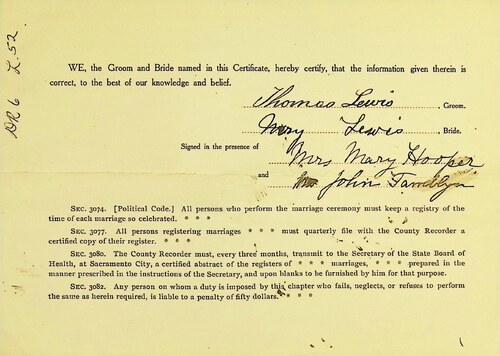 DR 6 L. 52.
WE, the Groom and Bride named in this Certificate, hereby certify, that the information given therein is
correct, to the best of our knowledge and belief.
Thomas Lewis, Groom.
Mary Lewis, Bride.
Signed in the presence of
Mrs Mary Hooper
and John Tamblyn
SEC. 3074. [Political Code.] All persons who perform the marriage ceremony must keep a registry of the
time of each marriage so celebrated. * * *
SEC. 3077. All persons registering marriages * * * must quarterly file with the County Recorder
a certified copy of their register. * * *
SEC. 3080. The County Recorder must, every three months, transmit to the Secretary of the State Board of
Health, at Sacramento City, a certified abstract of the registers of * * * marriages, * * * prepared in the
manner prescribed in the instructions of the Secretary, and upon blanks to be furnished by him for that purpose.
SEC. 3082. Any person on whom a duty is imposed by this chapter who fails, neglects, or refuses to perform
the same as herein required, is liable to a penalty of fifty dollars. * * *